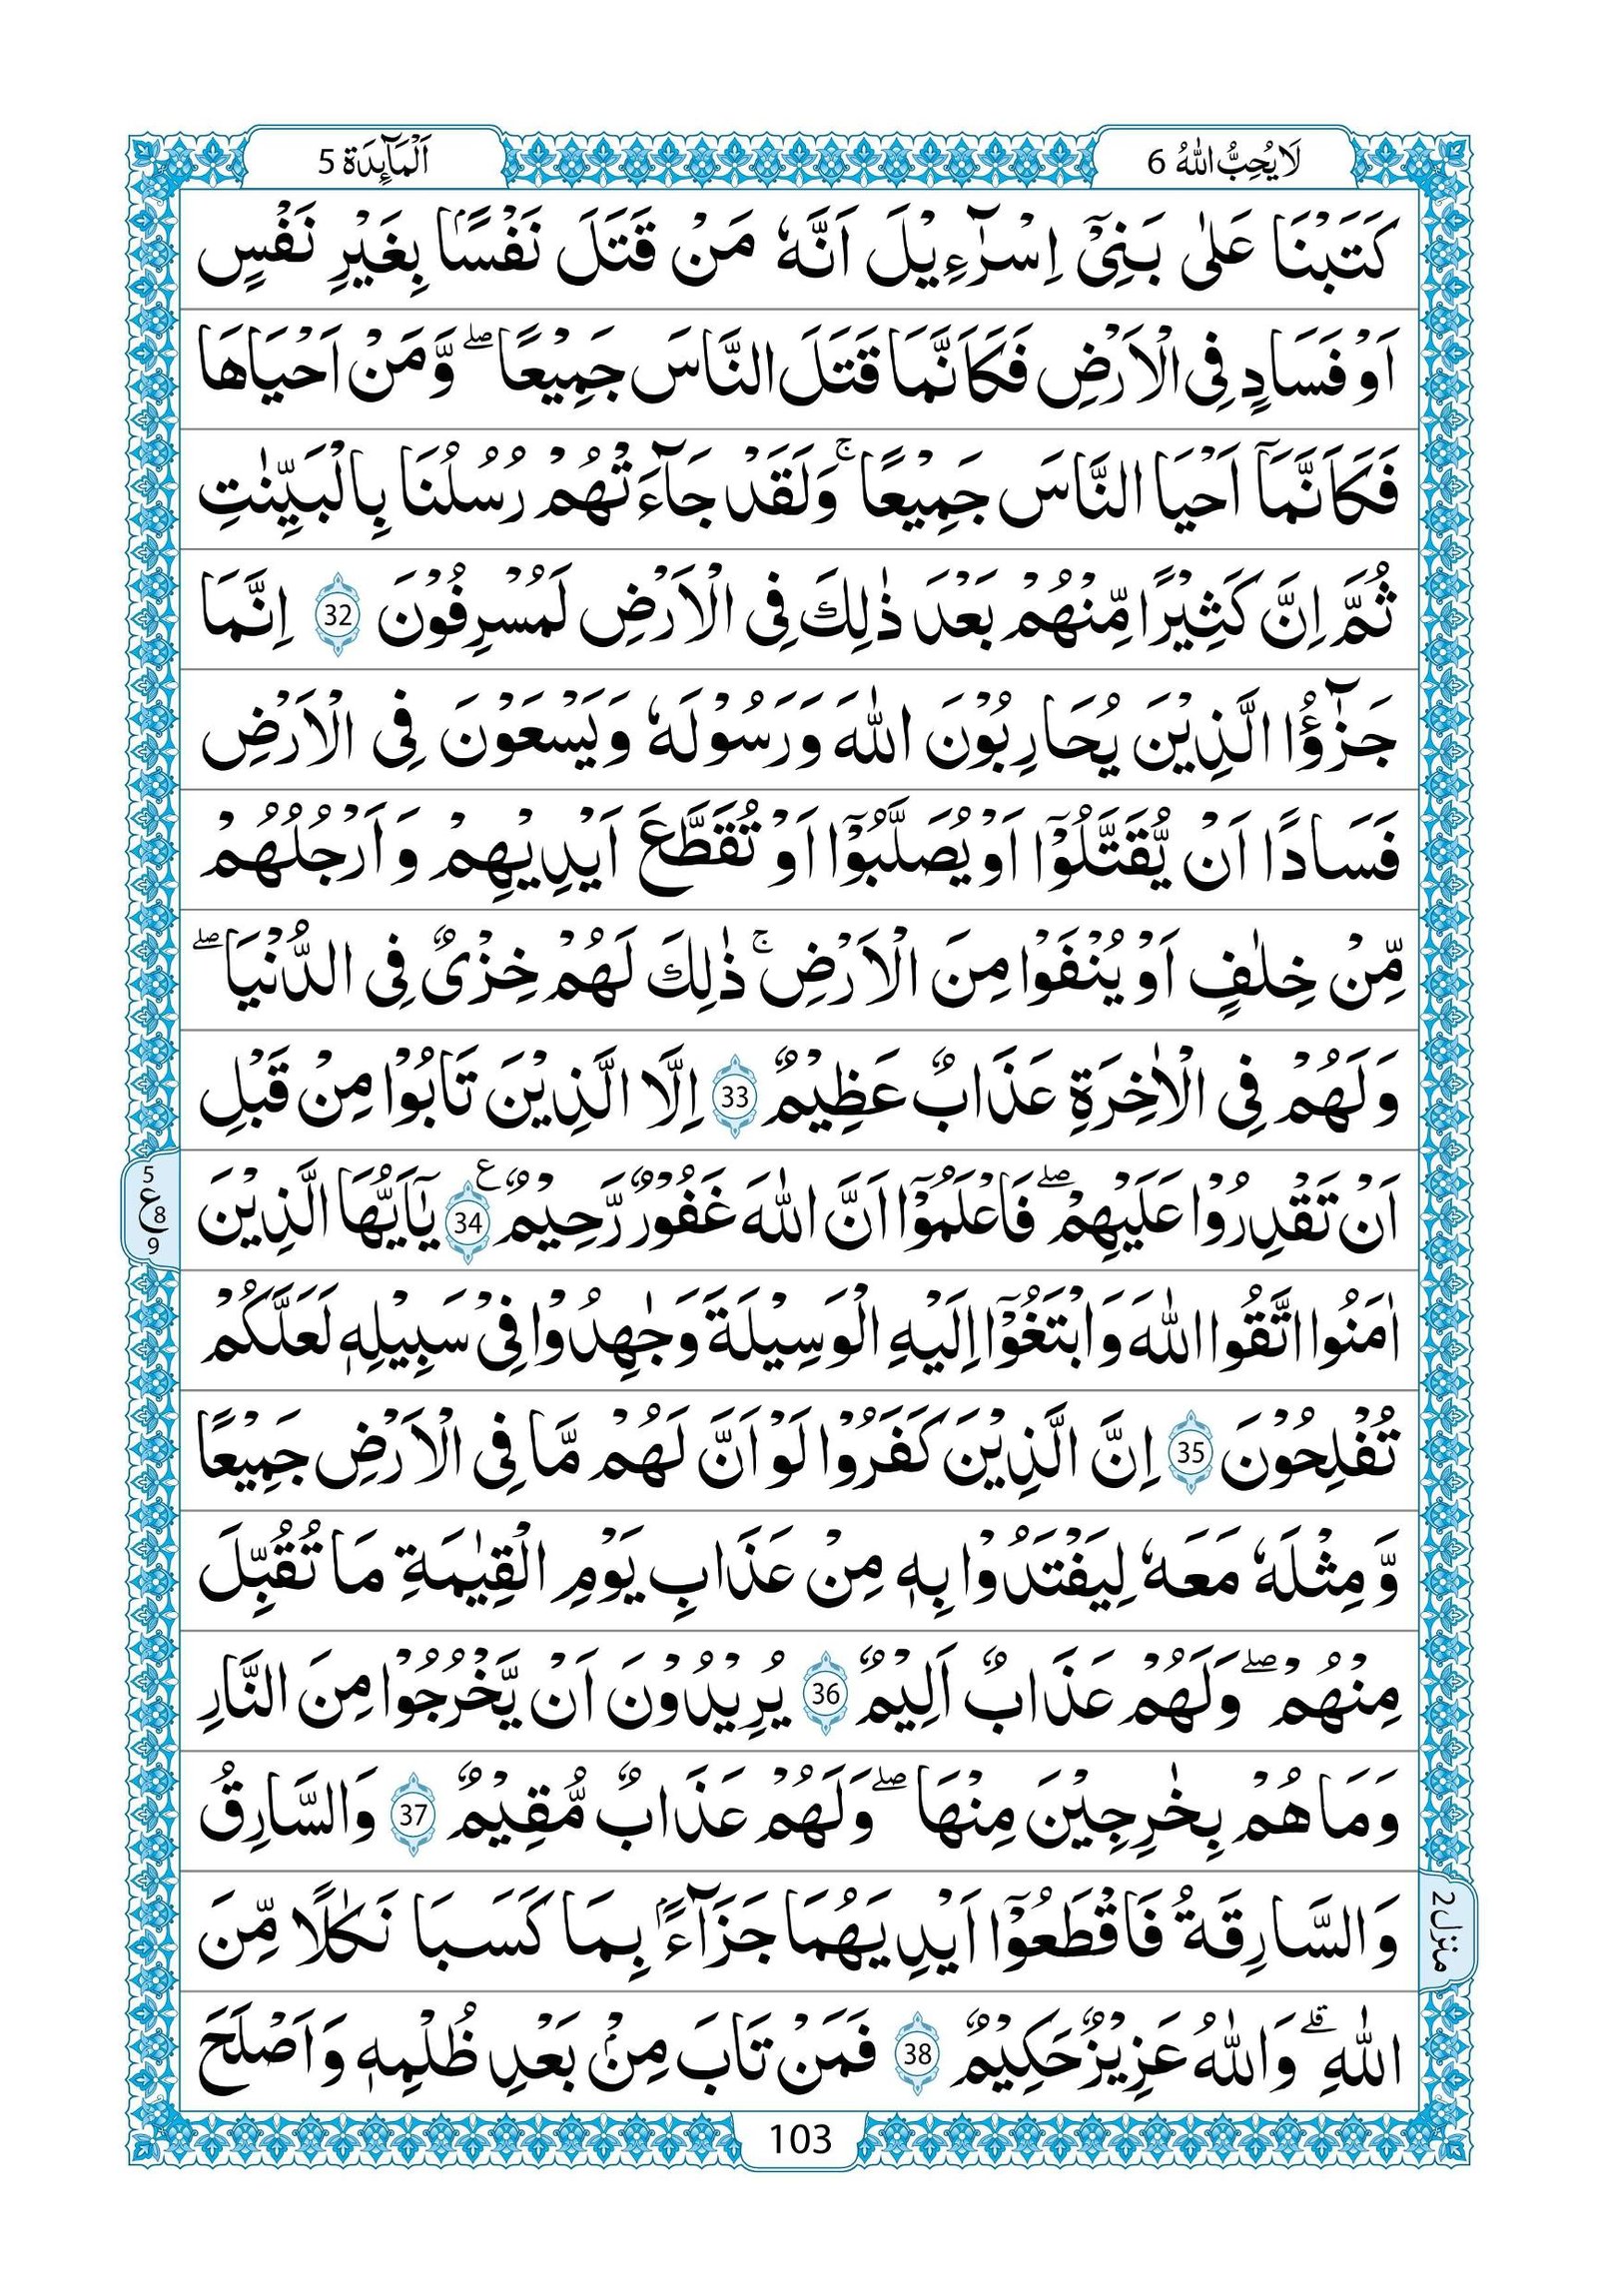 لَا يُحِبُّ اللّٰهُ 6
اَلْمَآئِدَة 5
كَتَبْنَا عَلٰى بَنِىْٓ اِسْرَآءِيْلَ اَنَّهٗ مَنْ قَتَلَ نَفْسًۢا بِغَيْرِ نَفْسٍ
اَوْ فَسَادٍ فِى الْاَرْضِ فَكَاَنَّمَا قَتَلَ النَّاسَ جَمِيْعًا ؕۖ وَّمَنْ اَحْيَاهَا
فَكَاَنَّمَآ اَحْيَا النَّاسَ جَمِيْعًا ۚ وَلَقَدْ جَآءَتْهُمْ رُسُلُنَا بِالْبَيِّنٰتِ
ثُمَّ اِنَّ كَثِيْرًا مِّنْهُمْ بَعْدَ ذٰلِكَ فِى الْاَرْضِ لَمُسْرِفُوْنَ 32 اِنَّمَا
جَزٰٓؤُا الَّذِيْنَ يُحَارِبُوْنَ اللّٰهَ وَرَسُوْلَهٗ وَيَسْعَوْنَ فِى الْاَرْضِ
فَسَادًا اَنْ يُّقَتَّلُوْٓا اَوْ يُصَلَّبُوْٓا اَوْ تُقَطَّعَ اَيْدِيْهِمْ وَاَرْجُلُهُمْ
مِّنْ خِلٰفٍ اَوْ يُنْفَوْا مِنَ الْاَرْضِ ۚ ذٰلِكَ لَهُمْ خِزْىٌ فِى الدُّنْيَا ۖ
وَلَهُمْ فِى الْاٰخِرَةِ عَذَابٌ عَظِيْمٌ 33 اِلَّا الَّذِيْنَ تَابُوْا مِنْ قَبْلِ
اَنْ تَقْدِرُوْا عَلَيْهِمْ ۖ فَاعْلَمُوْٓا اَنَّ اللّٰهَ غَفُوْرٌ رَّحِيْمٌ ع 34 يٰٓاَيُّهَا الَّذِيْنَ
5 ع 8 9
اٰمَنُوا اتَّقُوا اللّٰهَ وَابْتَغُوْٓا اِلَيْهِ الْوَسِيْلَةَ وَجٰهِدُوْا فِىْ سَبِيْلِهٖ لَعَلَّكُمْ
تُفْلِحُوْنَ 35 اِنَّ الَّذِيْنَ كَفَرُوْا لَوْ اَنَّ لَهُمْ مَّا فِى الْاَرْضِ جَمِيْعًا
وَّمِثْلَهٗ مَعَهٗ لِيَفْتَدُوْا بِهٖ مِنْ عَذَابِ يَوْمِ الْقِيٰمَةِ مَا تُقُبِّلَ
مِنْهُمْ ۖ وَلَهُمْ عَذَابٌ اَلِيْمٌ 36 يُرِيْدُوْنَ اَنْ يَّخْرُجُوْا مِنَ النَّارِ
وَمَا هُمْ بِخٰرِجِيْنَ مِنْهَا ۖ وَلَهُمْ عَذَابٌ مُّقِيْمٌ 37 وَالسَّارِقُ
وَالسَّارِقَةُ فَاقْطَعُوْٓا اَيْدِيَهُمَا جَزَآءًۢ بِمَا كَسَبَا نَكَالًا مِّنَ
منزل 2
اللّٰهِ ۗ وَاللّٰهُ عَزِيْزٌ حَكِيْمٌ 38 فَمَنْ تَابَ مِنْۢ بَعْدِ ظُلْمِهٖ وَاَصْلَحَ
103